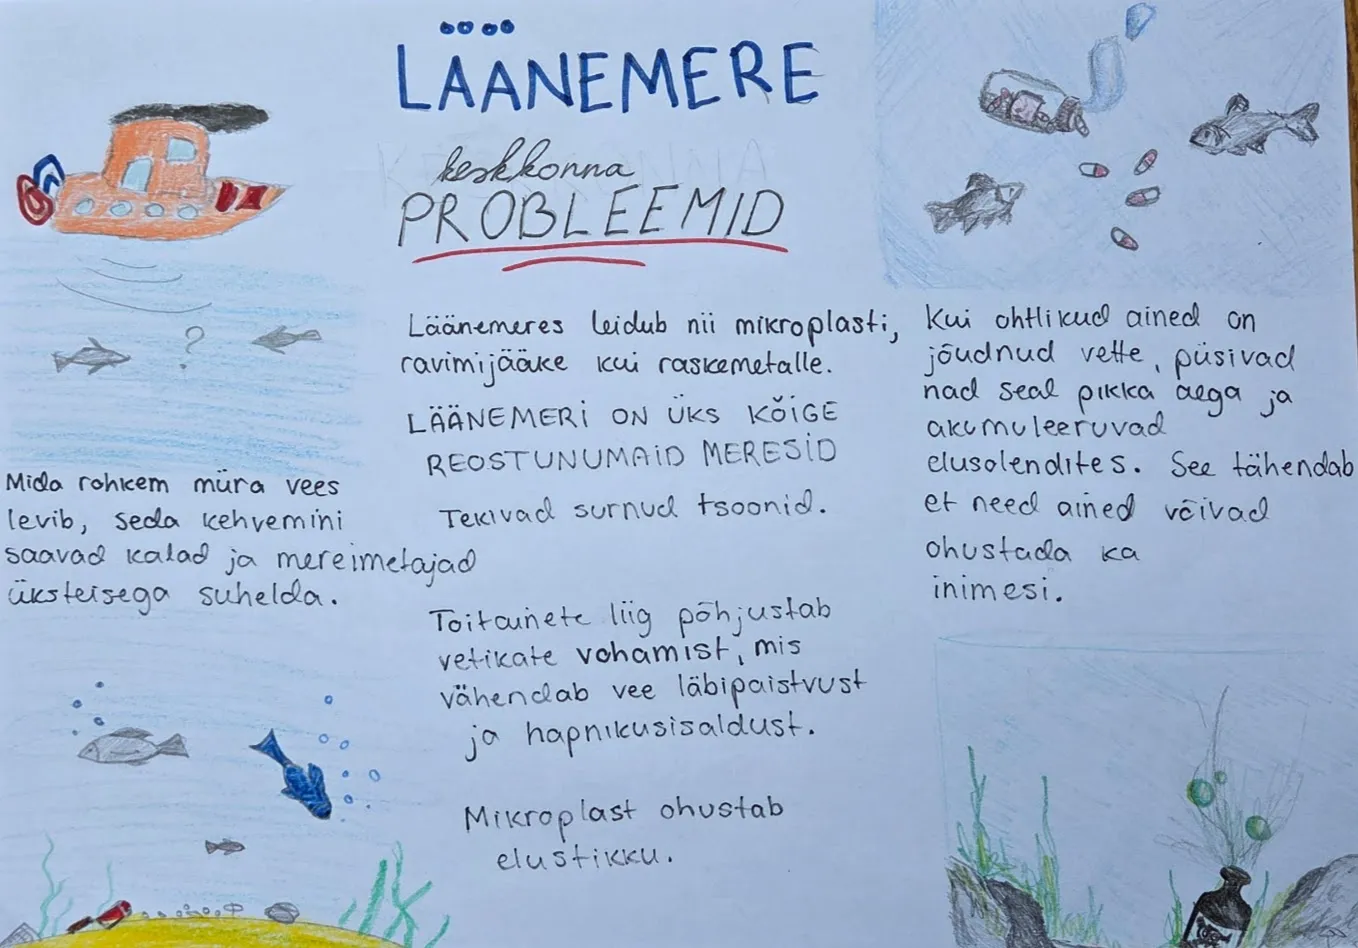 LÄÄNEMERE
keskkonna
PROBLEEMID
Mida rohkem müra vees
levib, seda kehvemini
saavad kalad ja mereimetajad
üksteisega suhelda.
Läänemeres leidub nii mikroplasti,
ravimijääke kui raskemetalle.
LÄÄNEMERI ON ÜKS KÕIGE
REOSTUNUMAID MERESID
Tekivad surnud tsoonid.
Toitainete liig põhjustab
vetikate vohamist, mis
vähendab vee läbipaistvust
ja hapnikusisaldust.
Mikroplast ohustab
elustikku.
Kui ohtlikud ained on
jõudnud vette, püsivad
nad seal pikka aega ja
akumuleeruvad
elusolendites. See tähendab
et need ained võivad
ohustada ka
inimesi.
?